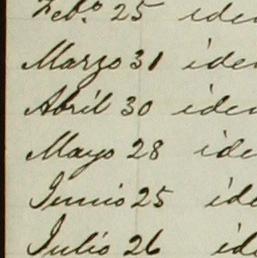 Feb.º 25 iden
Marzo 31 iden
Abril 30 iden
Mayo 28 iden
Junio 25 ide
Julio 26 id